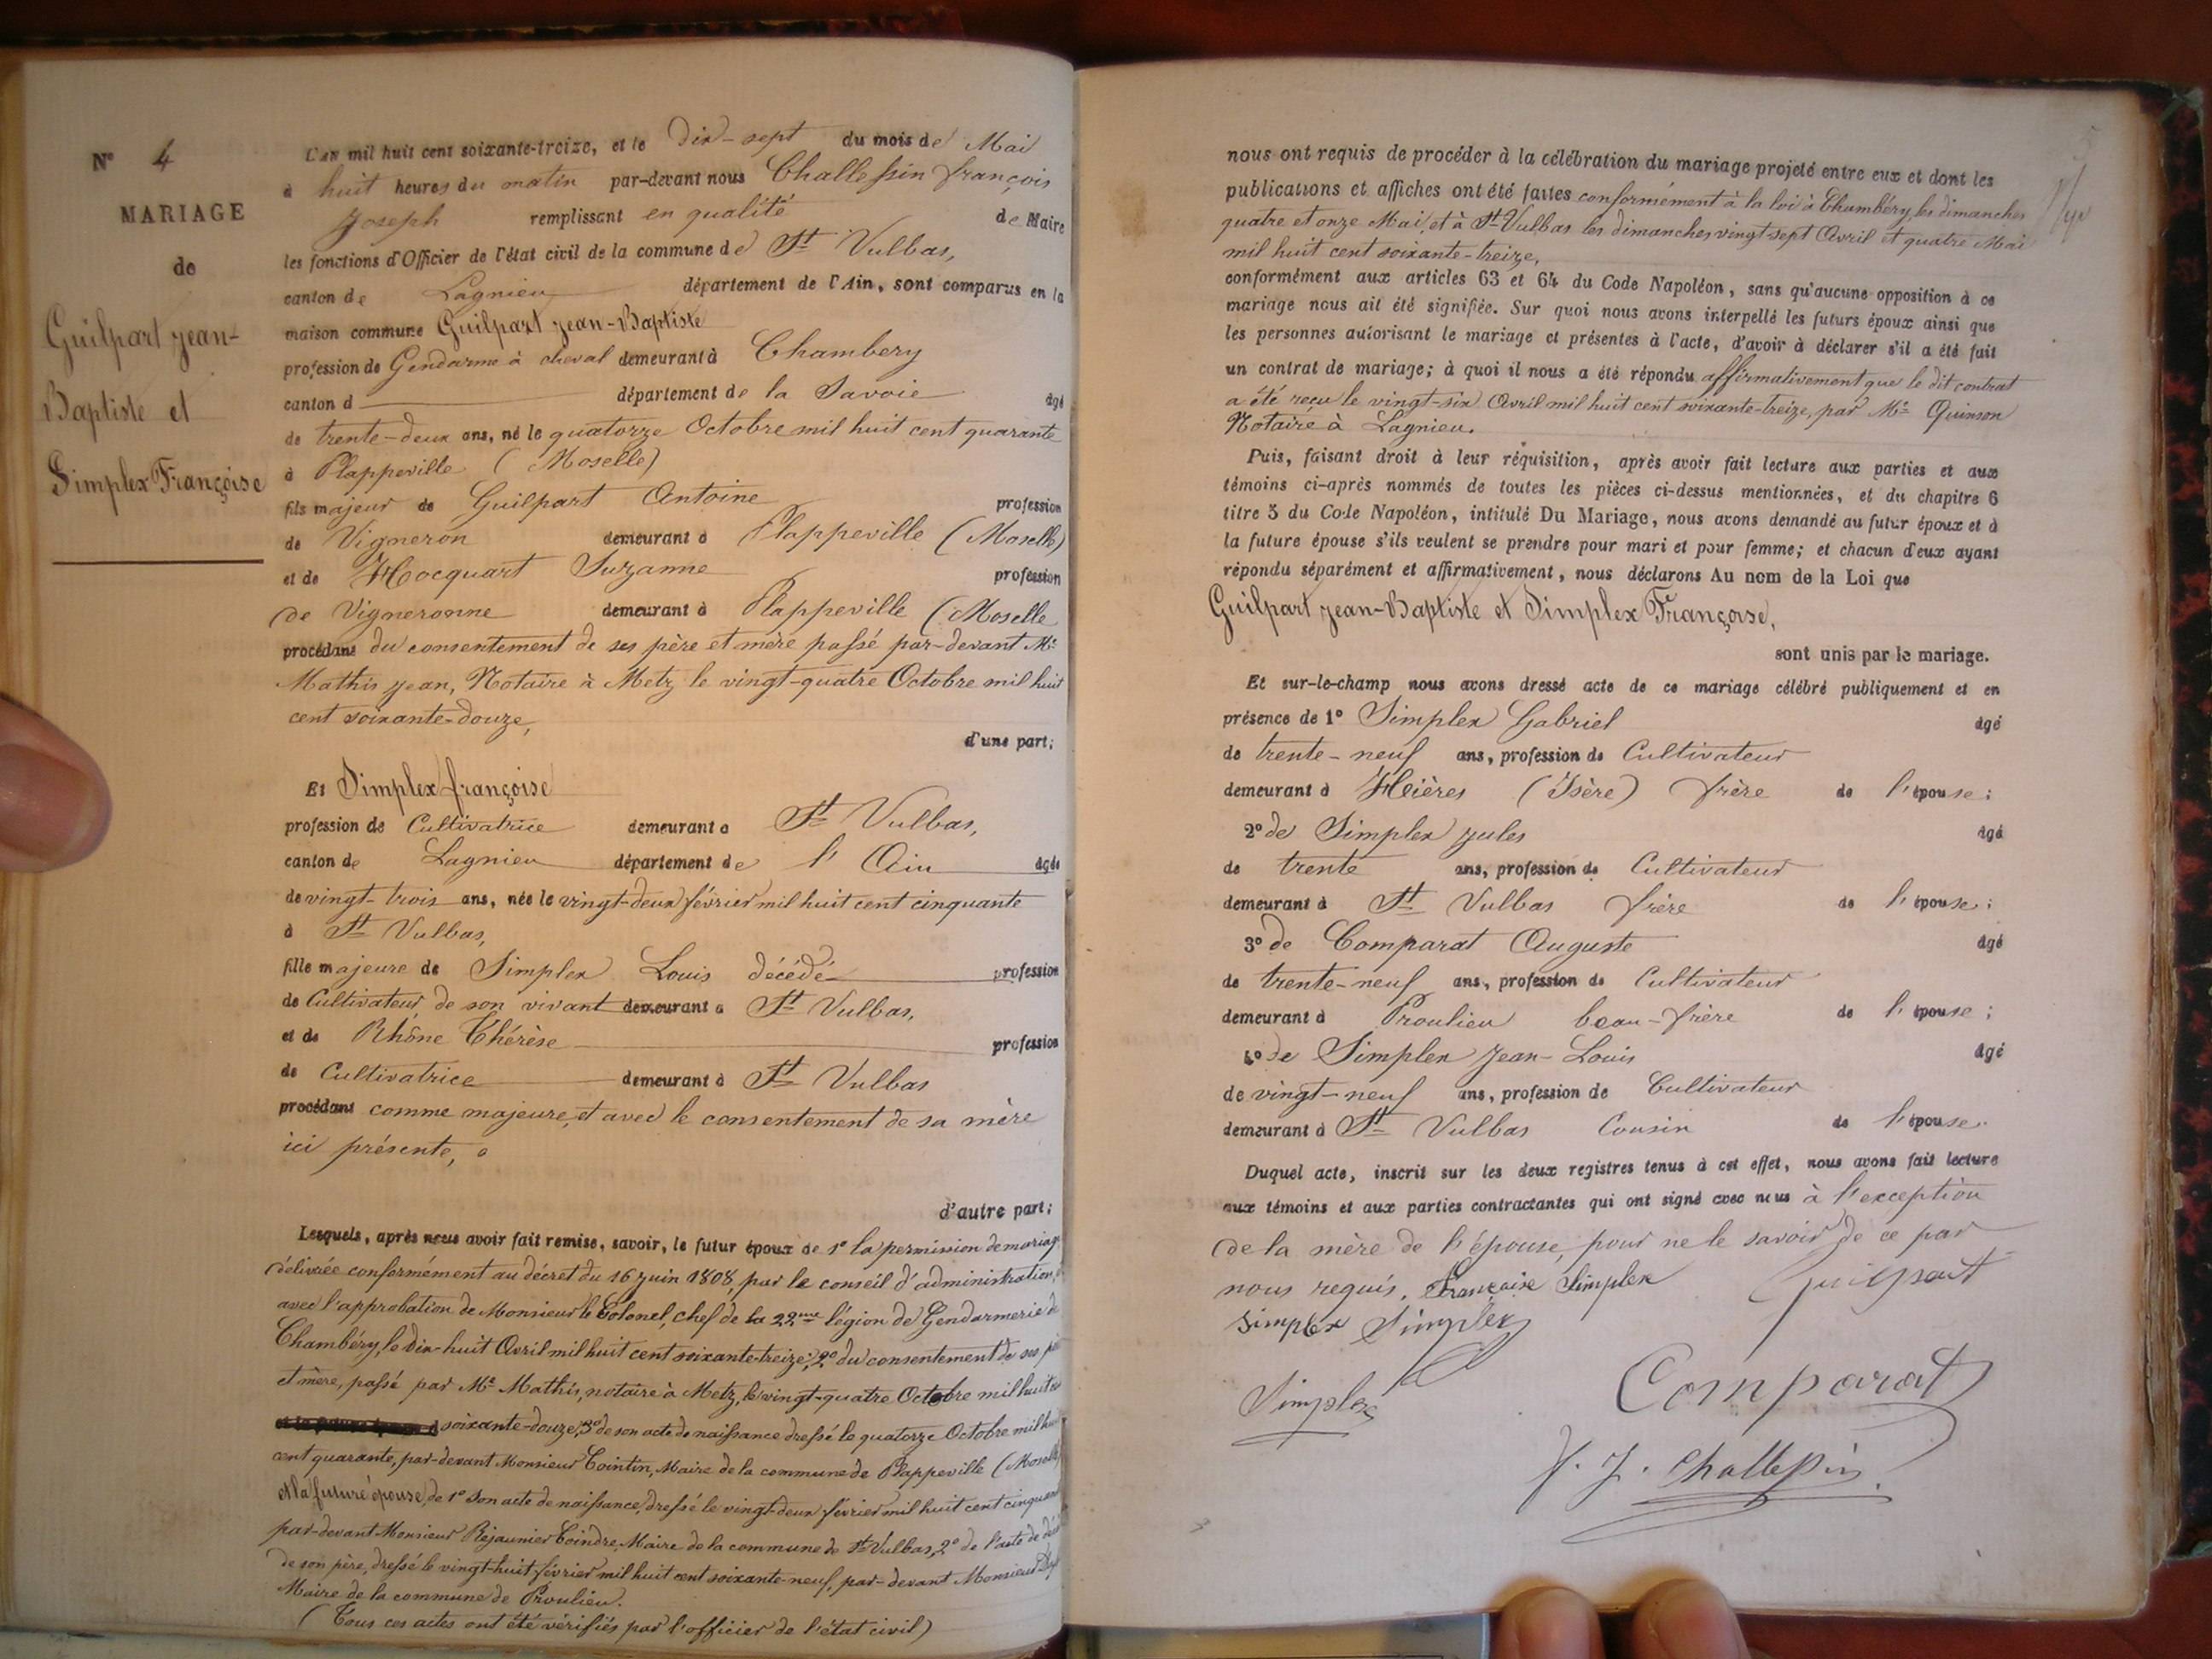 N° 4
MARIAGE
de
Guilpart Jean-
Baptiste et
Simplex Françoise
L'an mil huit cent soixante-treize, et le Dix-sept du mois de Mai
à huit heures du matin par-devant nous Challessin françois
Joseph remplissant en qualité de Maire
les fonctions d'Officier de l'état civil de la commune de St Vulbas,
canton de Lagnieu département de l'Ain, sont comparus en la
maison commune Guilpart Jean-Baptiste
profession de Gendarme à cheval demeurant à Chambery
canton d département de la Savoie âgé
de trente-deux ans, né le quatorze Octobre mil huit cent quarante
à Plappeville (Moselle)
fils majeur de Guilpart Antoine profession
de Vigneron demeurant à Plappeville (Moselle)
et de Hocquart Suzanne profession
de Vigneronne demeurant à Plappeville (Moselle
procédant du consentement de ses père et mère passé par-devant Me
Mathis Jean, Notaire à Metz le vingt-quatre Octobre mil huit
cent soixante-douze,
d'une part;
Et Simplex françoise
profession de Cultivatrice demeurant à St Vulbas,
canton de Lagnieu département de l'Ain âgée
de vingt-trois ans, née le vingt-deux février mil huit cent cinquante
à St Vulbas,
fille majeure de Simplex Louis décédé profession
de Cultivateur de son vivant demeurant à St Vulbas,
et de Rhône Thérèse profession
de Cultivatrice demeurant à St Vulbas
procédant comme majeure, et avec le consentement de sa mère
ici présente,
d'autre part;
Lesquels, après nous avoir fait remise, savoir, le futur époux de 1° la permission de mariage
délivrée conformément au décret du 16 juin 1808, par le conseil d'administration,
avec l'approbation de Monsieur le Colonel, chef de la 22me légion de Gendarmerie de
Chambéry, le dix-huit Avril mil huit cent soixante-treize; 2° du consentement de ses père
et mère, passé par Me Mathis, notaire à Metz, le vingt-quatre Octobre mil huit cent
soixante-douze, 3° de son acte de naissance dressé le quatorze Octobre mil huit
cent quarante, par-devant Monsieur Tointin, Maire de la commune de Plappeville (Moselle)
et la future épouse, de 1° son acte de naissance, dressé le vingt-deux février mil huit cent cinquante
par-devant Monsieur Rejaunier Cointre, Maire de la commune de St Vulbas, 2° de l'acte de décès
de son père, dressé le vingt-huit février mil huit cent soixante-neuf, par-devant Monsieur
Maire de la commune de Proulieu.
(Tous ces actes ont été vérifiés par l'officier de l'état civil)
nous ont requis de procéder à la célébration du mariage projeté entre eux et dont les
publications et affiches ont été faites conformément à la loi à Chambéry, les dimanches
quatre et onze Mai, et à St Vulbas les dimanches vingt-sept Avril et quatre Mai
mil huit cent soixante-treize,
conformément aux articles 63 et 64 du Code Napoléon, sans qu'aucune opposition à ce
mariage nous ait été signifiée. Sur quoi nous avons interpellé les futurs époux ainsi que
les personnes autorisant le mariage et présentes à l'acte, d'avoir à déclarer s'il a été fait
un contrat de mariage; à quoi il nous a été répondu affirmativement que le dit contrat
a été reçu le vingt-six Avril mil huit cent soixante-treize, par Me Quinson
Notaire à Lagnieu.
Puis, faisant droit à leur réquisition, après avoir fait lecture aux parties et aux
témoins ci-après nommés de toutes les pièces ci-dessus mentionnées, et du chapitre 6
titre 5 du Code Napoléon, intitulé Du Mariage, nous avons demandé au futur époux et à
la future épouse s'ils veulent se prendre pour mari et pour femme; et chacun d'eux ayant
répondu séparément et affirmativement, nous déclarons Au nom de la Loi que
Guilpart Jean-Baptiste et Simplex Françoise,
sont unis par le mariage.
Et sur-le-champ nous avons dressé acte de ce mariage célébré publiquement et en
présence de 1° Simplex Gabriel âgé
de trente-neuf ans, profession de Cultivateur
demeurant à Hières (Isère) frère de l'épouse;
2° de Simplex Jules âgé
de trente ans, profession de Cultivateur
demeurant à St Vulbas frère de l'épouse;
3° de Comparat Auguste âgé
de trente-neuf ans, profession de Cultivateur
demeurant à Proulieu beau-frère de l'épouse;
4° de Simplex Jean-Louis âgé
de vingt-neuf ans, profession de Cultivateur
demeurant à St Vulbas Cousin de l'épouse.
Duquel acte, inscrit sur les deux registres tenus à cet effet, nous avons fait lecture
aux témoins et aux parties contractantes qui ont signé avec nous à l'exception
de la mère de l'épouse, pour ne le savoir de ce par
nous requis. Françoise Simplex Guilpart
Simplex Simplex
Simplex Comparat
F. J. Challessin